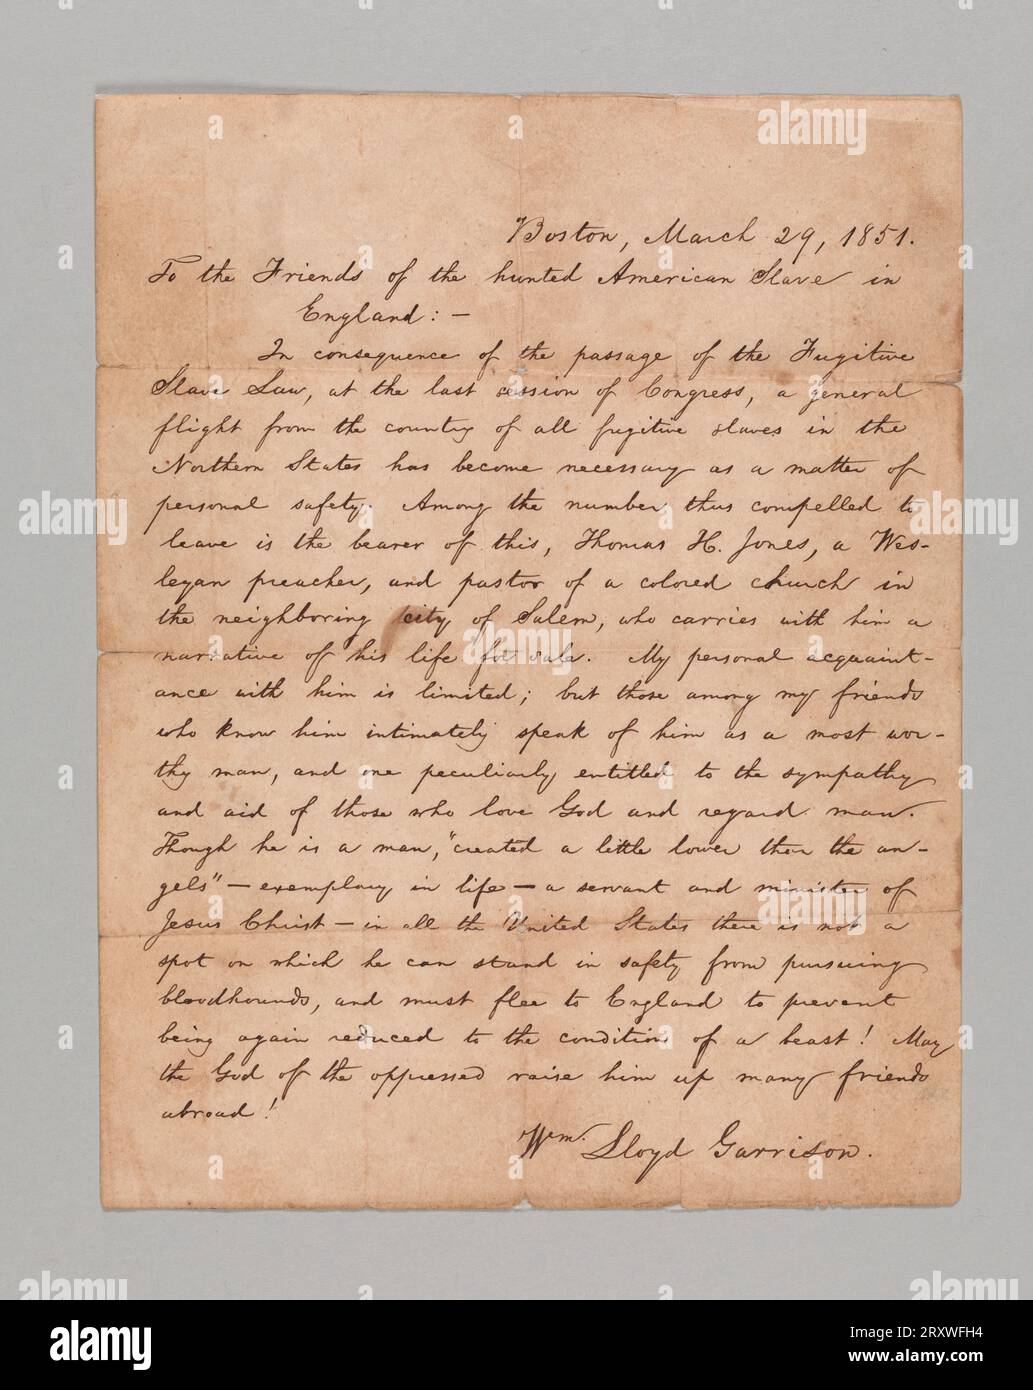 Boston, March 29, 1851.
To the Friends of the hunted American Slave in
England: —
In consequence of the passage of the Fugitive
Slave Law, at the last session of Congress, a general
flight from the country of all fugitive slaves in the
Northern States has become necessary as a matter of
personal safety. Among the number thus compelled to
leave is the bearer of this, Thomas H. Jones, a Wes-
leyan preacher, and pastor of a colored church in
the neighboring city of Salem, who carries with him a
narrative of his life for sale. My personal acquaint-
ance with him is limited; but those among my friends
who know him intimately speak of him as a most wor-
thy man, and one peculiarly entitled to the sympathy
and aid of those who love God and regard man.
Though he is a man, "created a little lower than the an-
gels" — exemplary in life — a servant and minister of
Jesus Christ — in all the United States there is not a
spot on which he can stand in safety from pursuing
bloodhounds, and must flee to England to prevent
being again reduced to the condition of a beast! May
the God of the oppressed raise him up many friends
abroad!
Wm. Lloyd Garrison.
alamy
Image ID: 2RXWFH4
www.alamy.com